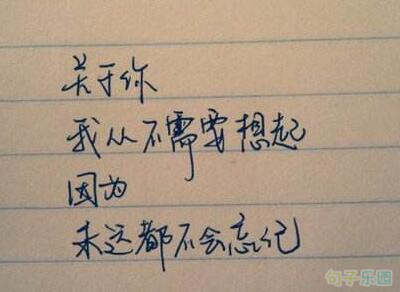 关于你
我从不需要想起
因为
永远都不会忘记
句子乐园